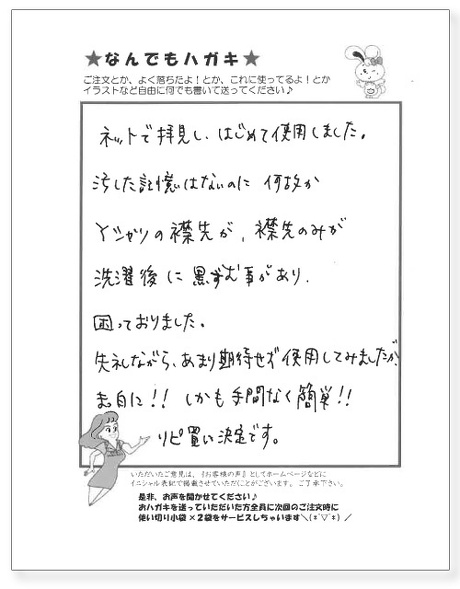 ★なんでもハガキ★
ご注文とか、よく落ちたよ！とか、これに使ってるよ！とか
イラストなど自由に何でも書いて送ってください♪
ネットで拝見し、はじめて使用しました。
汚した記憶はないのに 何故か
Yシャツの襟先が、襟先のみが
洗濯後に黒ずむ事があり、
困っておりました。
失礼ながら、あまり期待せず使用してみましたが、
まっ白に!! しかも手間なく簡単!!
リピ買い決定です。
いただいたご意見は、『お客様の声』としてホームページなどに
イニシャル表記で掲載させていただくことがございます。ご了承下さい。
是非、お声を聞かせてください♪
おハガキを送っていただいた方全員に次回のご注文時に
使い切り小袋×2袋をサービスしちゃいます＼(*^▽^*)／